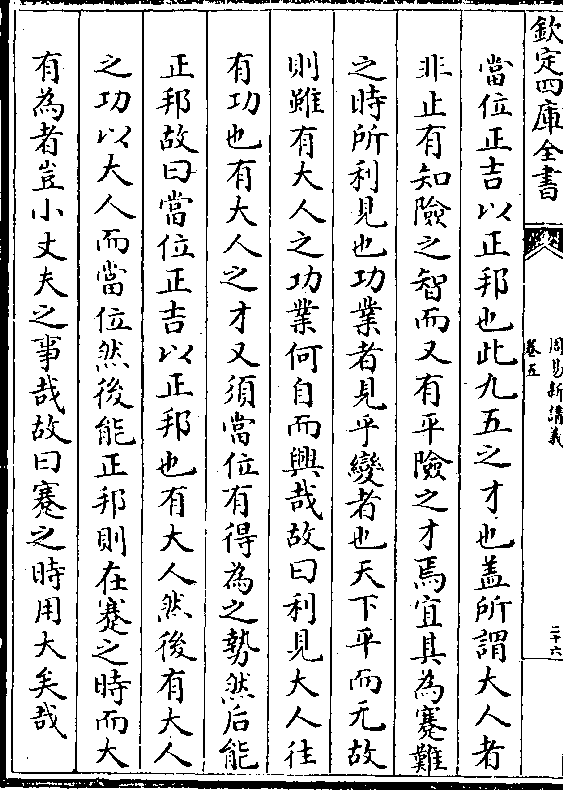 欽定四庫全書
周易新講義
卷五
二十六
當位正吉以正邦也此九五之才也盖所謂大人者
非止有知險之智而又有平險之才焉宜其為蹇難
之時所利見也功業者見乎變者也天下平而无故
則雖有大人之功業何自而興哉故曰利見大人往
有功也有大人之才又須當位有得為之勢然后能
正邦故曰當位正吉以正邦也有大人然後有大人
之功以大人而當位然後能正邦則在蹇之時而大
有為者豈小丈夫之事哉故曰蹇之時用大矣哉